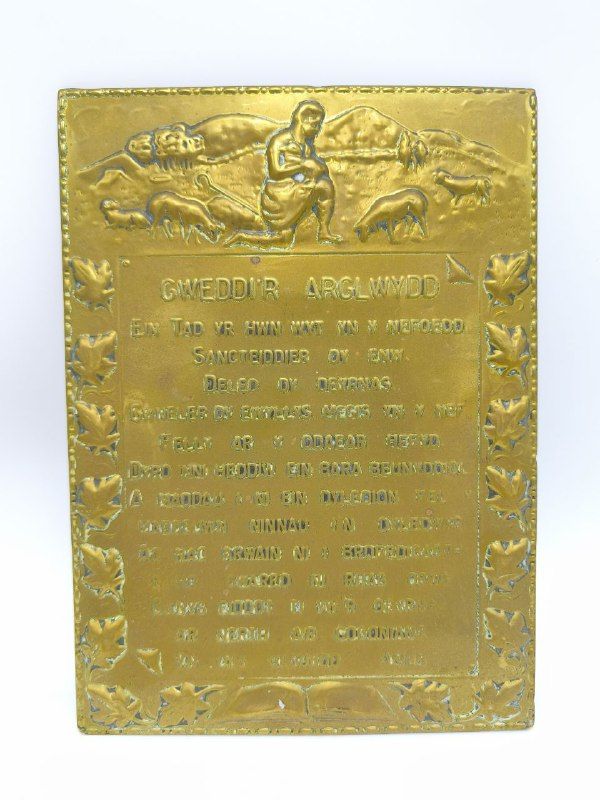 GWEDDI'R ARGLWYDD
EIN TAD YR HWN WYT YN Y NEFOEDD
SANCTEIDDIER DY ENW.
DELED DY DEYRNAS.
GWNELER DY EWYLLYS, MEGIS YN Y NEF
FELLY AR Y DDAEAR HEFYD.
DYRO I NI HEDDIW EIN BARA BEUNYDDIOL
A MADDAU I NI EIN DYLEDION FEL
MADDEUWN NINNAU I'N DYLEDWYR
AC NAC ARWAIN NI I BROFEDIGAETH
NI RHAG
NERTH A'R GOGONIANT